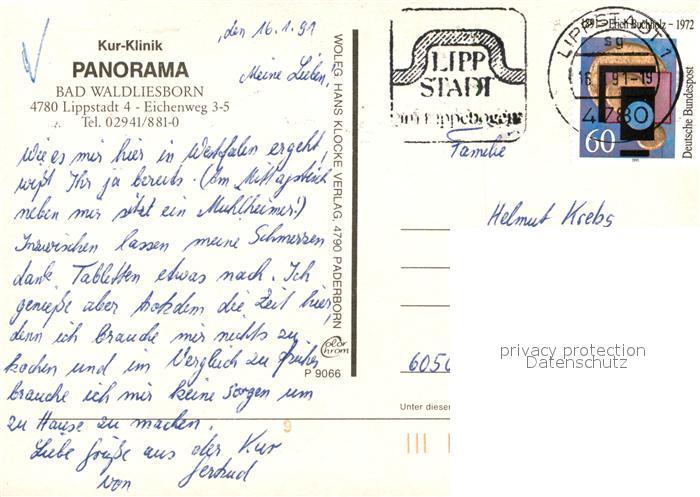 ,den 16.1.91
Kur-Klinik
PANORAMA
BAD WALDLIESBORN
4780 Lippstadt 4 - Eichenweg 3-5
Tel. 02941/881-0
Meine Lieben,
wie es mir hier in Westfalen ergeht,
wißt Ihr ja bereits. (Am Mittagstisch
neben mir sitzt ein Mühlheimer!)
Inzwischen lassen meine Schmerzen
dank Tabletten etwas nach. Ich
genieße aber trotzdem die Zeit hier,
denn ich brauche mir nichts zu
kochen und im Vergleich zu früher
brauche ich mir keine Sorgen um
zu Hause zu machen.
Liebe Grüße aus der Kur
von Gertrud
WOLEG HANS KLOCKE VERLAG, 4790 PADERBORN
color
chrom
P 9066
9
LIPP
STADT
am Lippebogen
LIPPSTADT 1
sg
16.1.91-19
4780
1891 - Erich Buchholz - 1972
Deutsche Bundespost
60
1991
Familie
Helmut Krebs
6050
Unter dieser
privacy protection
Datenschutz